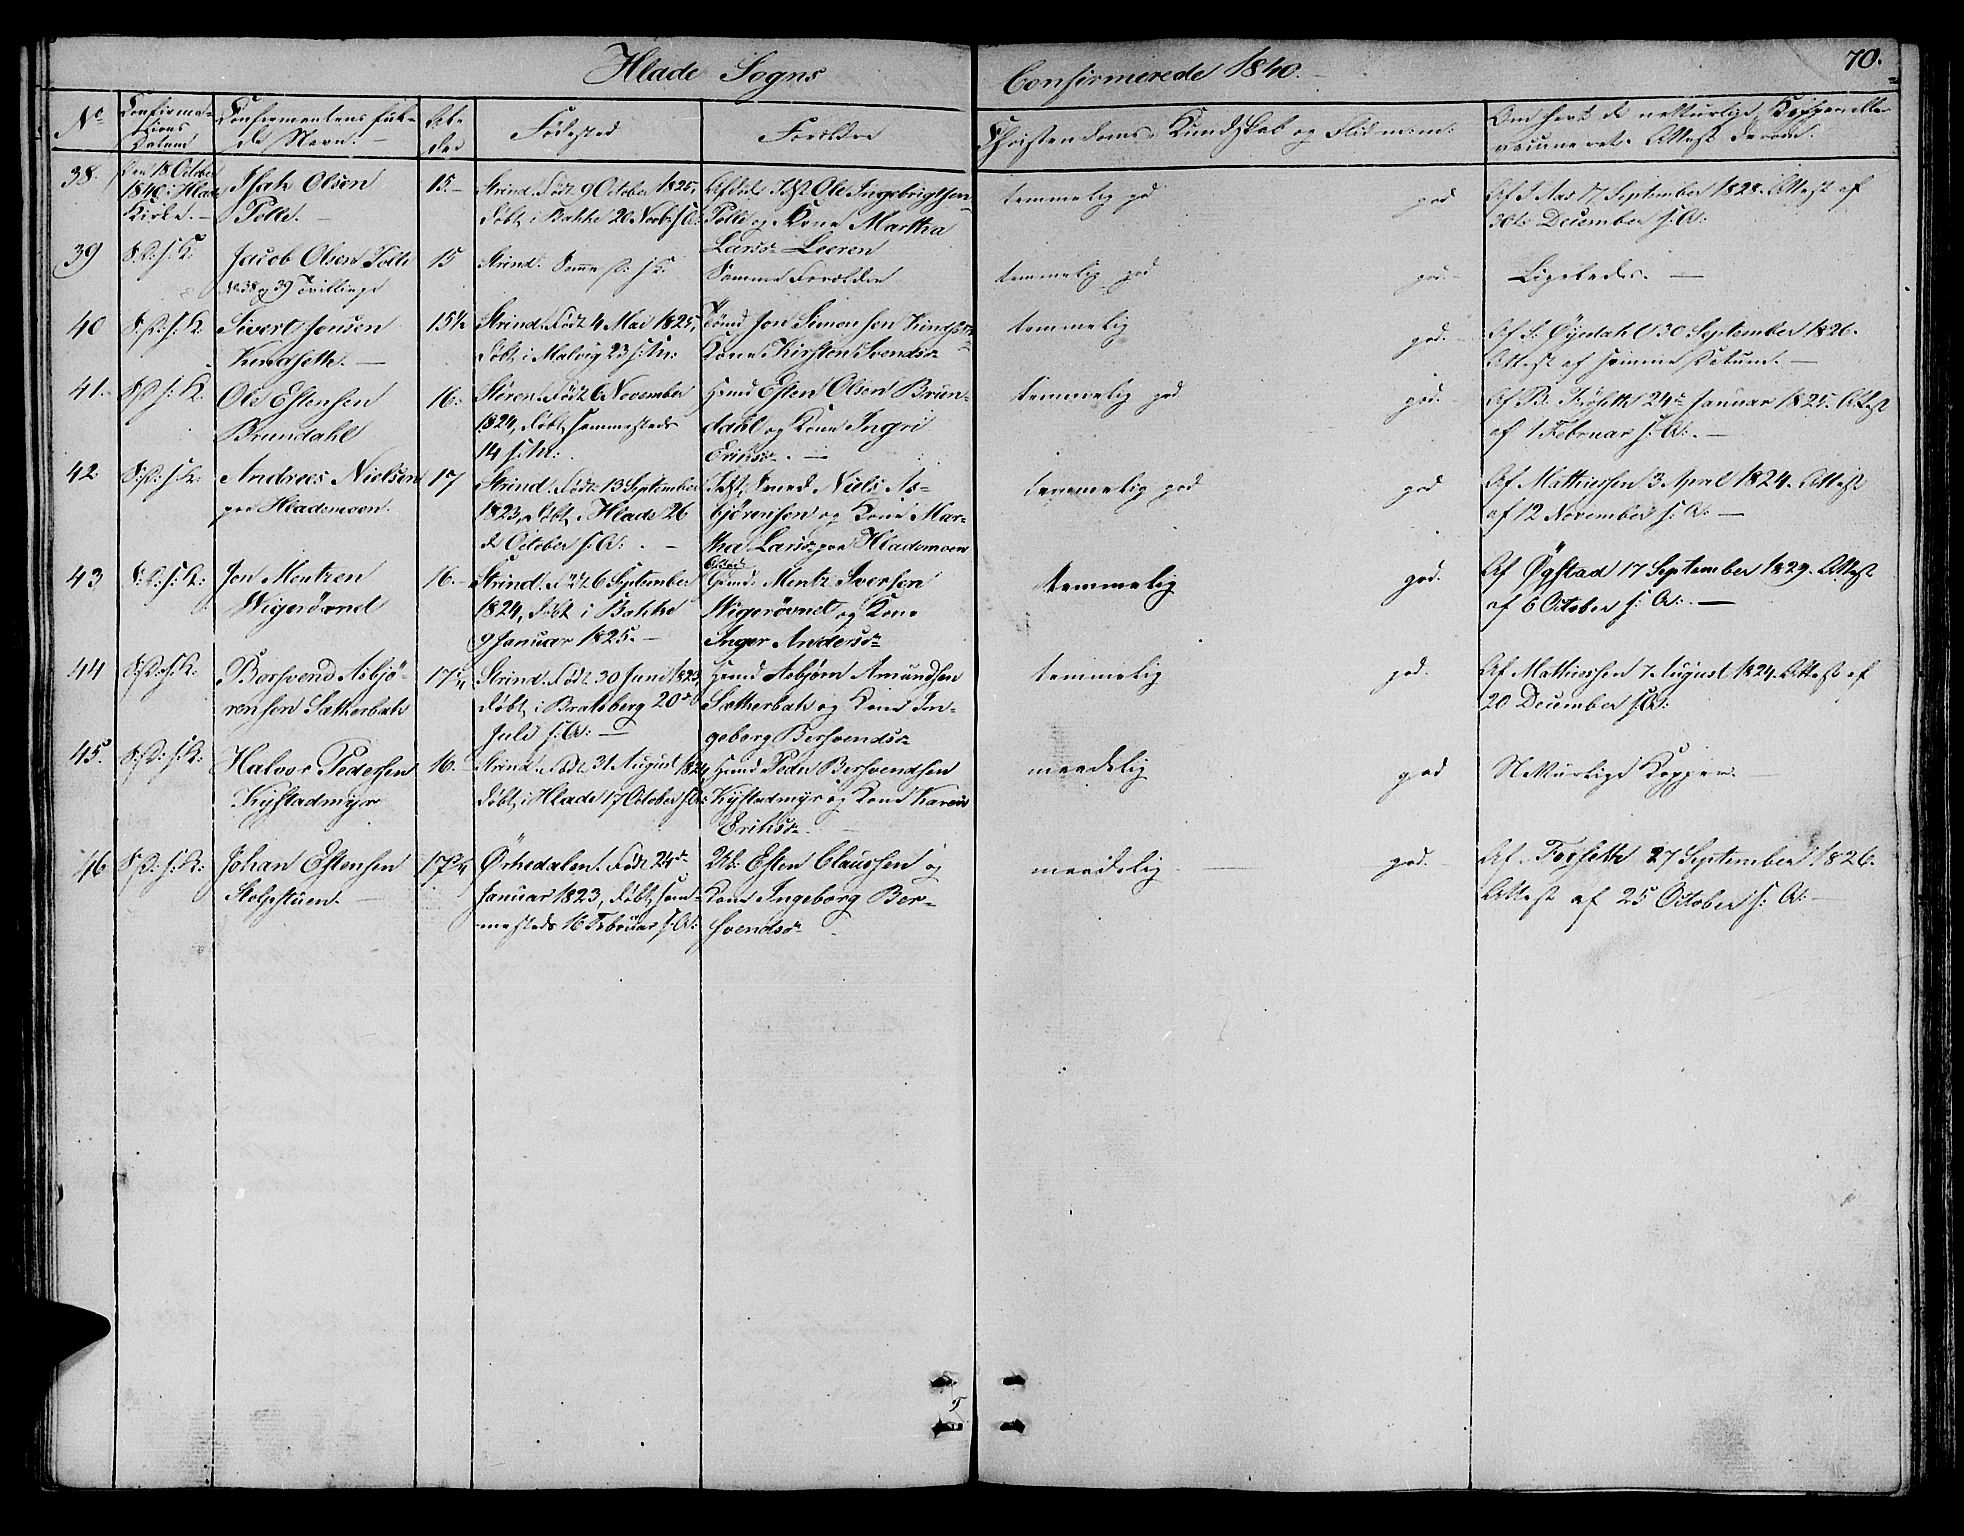 Hlade Sogns Confirmerede 1840. 70.
No Confirmations Datum Confirmantens fulde Navn. Alder Fødested Forældre Christendoms-Kundskab og Flid m: m: Om havt de naturlige Kopper eller vaccineret. Attest derom.
38. Den 18 October 1840 i Hlade Kirke.
Isak Olsen
Tolle.
15.
Strind. Født 9 October 1825,
døbt i Bakke 20 Novbr s: A:
Ole Ingebrigtsen
Tolle og Kone Martha
Larsd. Leeren
temmelig god
god
Af I. Aas 17 September 1828. Attest af
30te December s: A:
39 S. D: s. K:
Jacob Olsen Tolle
No 38 og 39 Tvillinge
15
Strind. Samme D: s K:
Samme Forældre
temmelig god
god.
Ligeledes.
40 S: D: s: K:
Sivert Jonsen
Kundseth.
15½
Strind. Født 4 Mai 1825,
døbt i Malvig 23 s: M:
Jon Simonsen
Kone Kirsten Svendsd.
temmelig
god.
Af S: Øyndahl 30 September 1826.
Attest af samme Datum.
41. S: D: s: K:
Ole Estensen
Brundahl
16.
Støren. Født 6 November
1824, døbt sammesteds
14 s: M:
Huusmd Esten Olsen Brun-
dahl og Kone Ingri
Eriksd.
temmelig god
god.
Af B. Frøseth 24de Januar 1825. Attest
af 1 Februar s: A:
42. S: D: s: K:
Andreas Nielsen
paa Hlademoen.
17
Strind. Født 13 September
1823, døbt i Hlade 26
de October s: A:
Smed Niels As-
bjørensen og Kone Mar-
tha Larsd. paa Hlademoen
temmelig god
god
Af Mathiessen 3 April 1824. Attest
af 12 November s: A:
43 S: D: s: K:
Jon Mentzen
Wigerøvnd
16.
Strind. Født 6 September
1824, døbt i Bakke
9 Januar 1825.
Mentz Iversen
Wigerøvnd og Kone
Inger Andersd.
temmelig
god.
Af Øgstad 17 September 1829. Attest
af 6 October s: A:
44 S: D: s: K:
Bersvend Asbjø-
rensen Sætherbak
17¼
Strind. Født 30 Juni 1823,
døbt i Bratsberg 20de
Juli s: A:
Huusmd Asbjørn Amundsen
Sætherbak og Kone In-
geborg Bersvendsd.
temmelig
god.
Af Mathiessen 7 August 1824. Attest af
20 December s: A:
45. S: D: s: K:
Halvor Pedersen
Kystadmyr
16.
Strind. Født 31 August 1824
døbt i Hlade 17 October s: A:
Huusmd Peder Bersvendsen
Kystadmyr og Kone Karen
Eriksd.
maadelig
god
Naturlige Kopper.
46 S: D: s: K:
Johan Estensen
Stolpstuen.
17¾
Ørkedalen. Født 24de
Januar 1823, døbt sam-
mesteds 16 Februar s: A:
Esten Claussen og
Kone Ingeborg Ber-
svendsd.
maadelig
god.
Af Forseth 27 September 1826.
Attest af 25 October s: A: